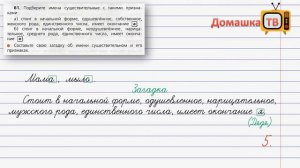 61. Подберите имена существительные с такими признаками:
а) стоит в начальной форме, одушевлённое, собственное, женского рода, единственного числа, имеет окончание а;
б) стоит в начальной форме, неодушевлённое, нарицательное, среднего рода, единственного числа, имеет окончание о.
● Составьте свою загадку об имени существительном и его признаках.
Домашка
ТВ
Мама, мыло.
Загадка
Стоит в начальной форме, одушевленное, нарицательное,
мужского рода, единственного числа, имеет окончание а.
(Дядя)
5.